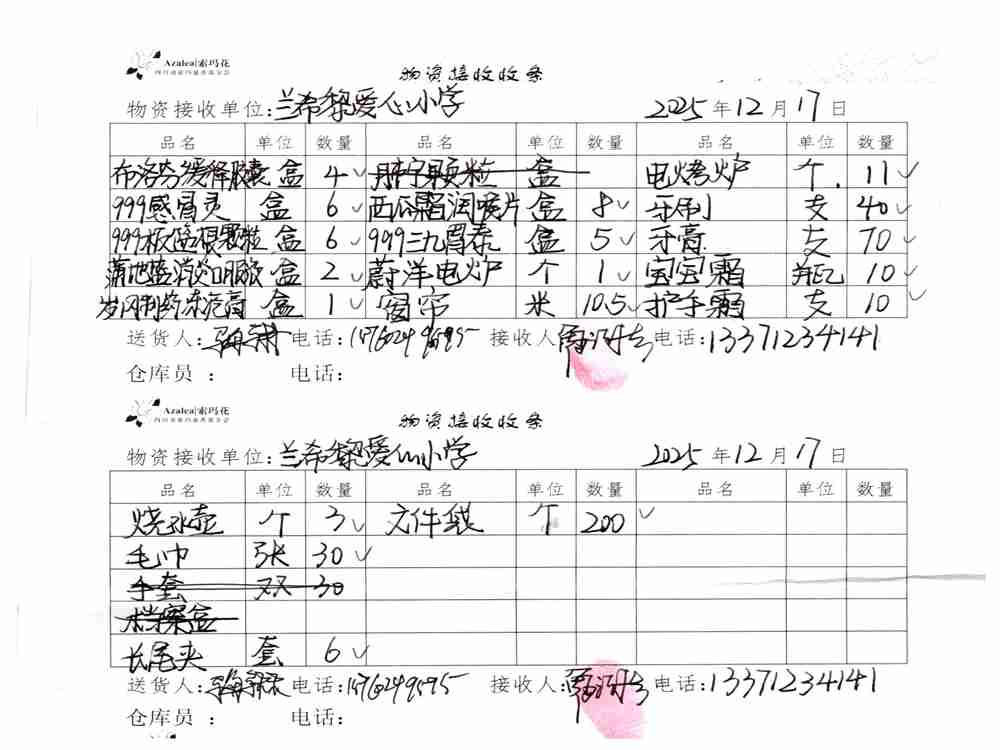 Azalea|索玛花
物资接收收条
物资接收单位:兰希黎爱心小学 2025年12月17日
品名 单位 数量 品名 单位 数量 品名 单位 数量
布洛芬缓释胶囊 盒 4 颗粒 盒 电烤炉 个 11
999感冒灵 盒 6 西瓜霜润喉片 盒 8 牙刷 支 40
999板蓝根颗粒 盒 6 999三九胃泰 盒 5 牙膏 支 70
蒲地蓝消炎口服液 盒 2 电炉 个 1 宝宝霜 瓶 10
盒 1 窗帘 米 10.5 护手霜 支 10
送货人: 电话: 接收人: 电话:13371234141
仓库员: 电话:
Azalea|索玛花
物资接收收条
物资接收单位:兰希黎爱心小学 2025年12月17日
品名 单位 数量 品名 单位 数量 品名 单位 数量
烧水壶 个 3 文件袋 个 200
毛巾 张 30
手套 双 30
档案盒
长尾夹 套 6
送货人: 电话: 接收人: 电话:13371234141
仓库员: 电话: